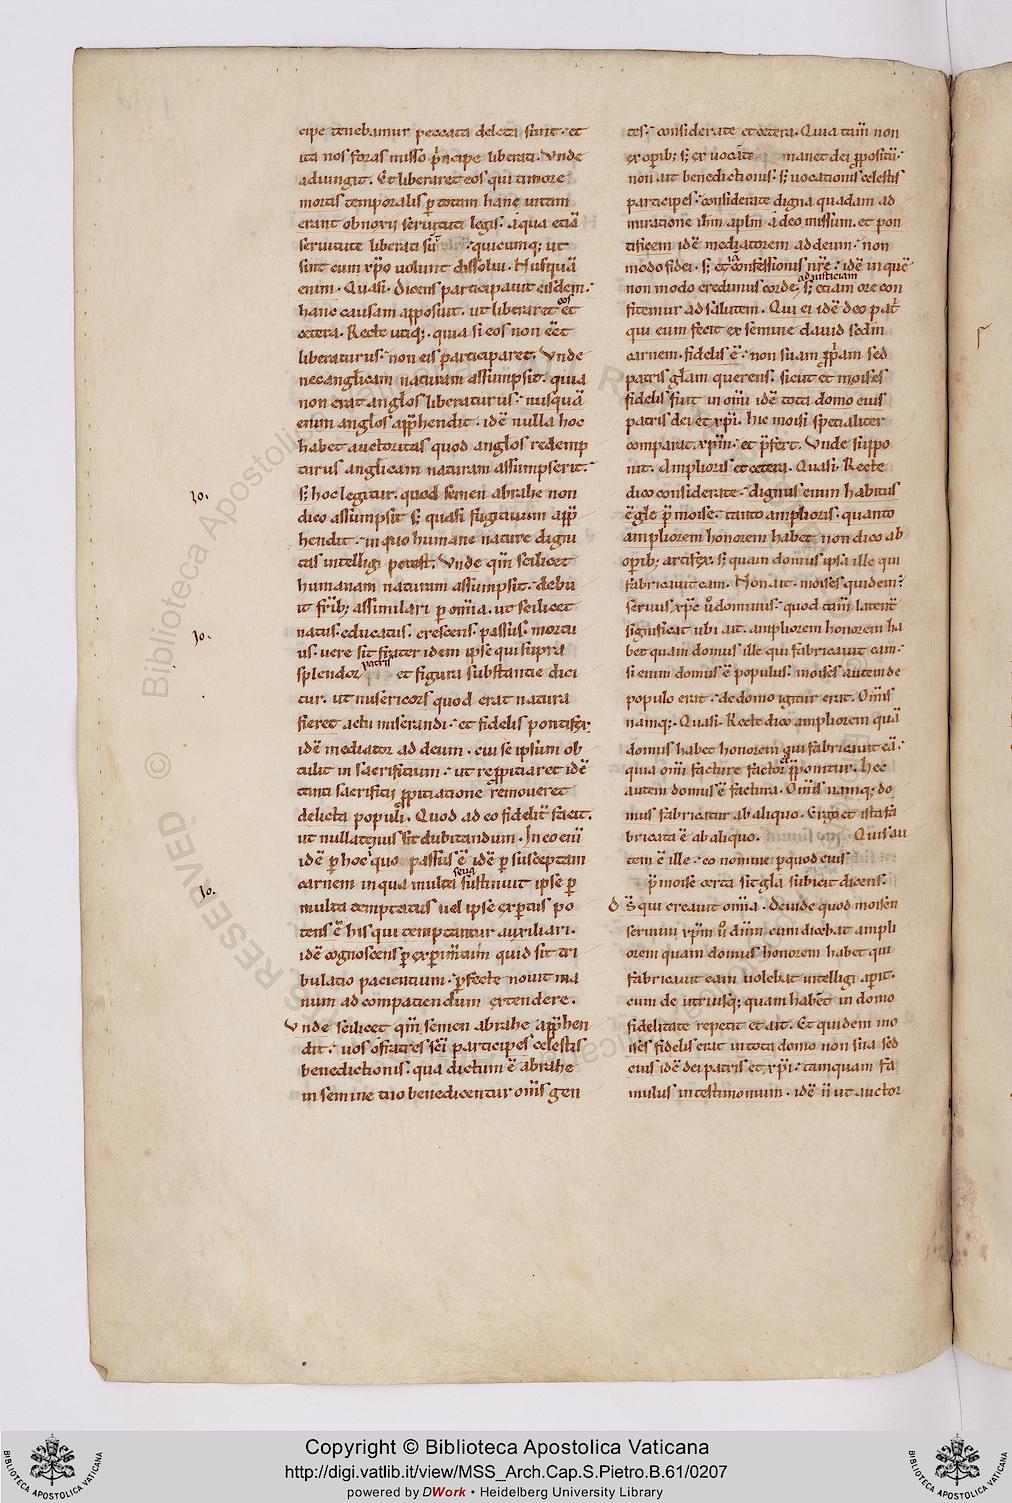 cipe tenebamur peccata deleta sunt. et
ita nos foras misso p̃ncipe liberati. Vnde
adiungit. Et liberaret eos qui timore
mortis temporalis ꝑ totam hanc uitam
erant obnoxii seruituti legis. a qua etiã
seruitute liberati sũt quicumq; ut
sint cum xp̃o uolunt dissolui. Nusquã
enim. Quasi. Dicens participauit eisdem.
hanc causam apposuit. ut liberaret eos et
cetera. Recte utiq;. quia si eos non eẽt
liberaturus. non eis participaret. Vnde
nec anglicam naturam assumpsit. quia
non erat anglos liberaturus. nusquã
enim anglos apphendit. idẽ nulla hoc
habet auctoritas quod anglos redemp
turus anglicam naturam assumpserit.
s; hoc legitur. quod semen abrahe non
dico assumpsit s; quasi fugituum app
hendit. in quo humane nature digni
tas intelligi potest. Vnde qm̃ scilicet
humanam naturam assumpsit. debu
it frĩb; assimilari ꝑ om̃ia. ut scilicet
natus. educatus. crescens. passus. mortu
us. uere sit frater idem ipse qui supra
splendor patris et figura substantie dici
tur. ut misericors quod erat natura
fieret actu miserandi. et fidelis pontifex.
idẽ mediator ad deum. cui se ipsum ob
tulit in sacrifitium. ut repropitiaret idẽ
tanti sacrifitii propitiatione remoueret
delicta populi. Quod ad eo fideliť faciet.
ut nullatenus sit dubitandum. In eo enĩ
idẽ ꝑ hoc quo passus ẽ idẽ ꝑ susceptam
carnem in qua multa seua sustinuit ipse ꝑ
multa temptatus uel ipse exꝑtus po
tens ẽ his qui temptantur auxiliari.
idẽ cognoscens ꝑ exꝑim̃tum quid sit tri
bulatio pacientium. ꝑfecte nouit ma
num ad compatiendum extendere.
Vnde scilicet qm̃ semen abrahe apphen
dit. uos o fratres sc̃i participes celestis
benedictionis. qua dictum ẽ abrahe
in semine tuo benedicentur om̃s gen
tes. considerate et cetera. Quia tam̃ non
ex opĩb; s; ex uocate manet dei propositũ.
non ait benedictionis. s; uocationis celestis
participes. considerate digna quadam ad
miratione ihm̃ aplm̃ a deo missum. et pon
tificem idẽ mediatorem ad deum. non
modo fidei. s; etiã confessionis nr̃e. idẽ in quẽ
non modo credimus corde ad iusticiam; s; etiam ore con
fitemur ad salutem. Qui ei idẽ deo pat̃
qui eum fecit ex semine dauid scdm̃
carnem. fidelis ẽ. non suam propriam sed
patris gl̃am querens. sicut et moises
fidelis fuit in om̃i idẽ tota domo eius
patris dei et xp̃i. hic moisi specialiter
comparat. xp̃m. et p̃fert. Vnde suppo
nit. Amplioris et cetera. Quasi. Recte
dico considerate. dignus enim habitus
ẽ gl̃e p̃ moise. tanto amplioris. quanto
ampliorem honorem habet non dico ab
opĩb; artifex. s; quam domus ipsa ille qui
fabricauit eam. Non ait. moises quidem
seruus. xp̃c ů dominus. quod tam̃ latent̃
significat ubi ait. ampliorem honorem ha
bet quam domus ille qui fabricauit eam.
si enim domus ẽ populus. moises autem de
populo erat. de domo igitur erat. Om̃is
namq;. Quasi. Recte dico ampliorem quã
domus habet honorem qui fabricauit eã.
quia om̃i facture factor preponitur. hec
autem domus ẽ factura. Om̃is namq; do
mus fabricatur ab aliquo. Ergo et ista fa
bricata ẽ ab aliquo. Quis au
tem ẽ ille. eo nomine ꝑ quod eius
p̃ moise certa sit gl̃a subicit dicens.
Ds̃ qui creauit om̃ia. Deinde quod moisen
seruum xp̃m ů dñm cum dicebat ampli
orem quam domus honorem habet qui
fabricauit eam uolebat intelligi aꝑit.
cum de utriusq; quam habet in domo
fidelitate repetit et ait. Et quidem mo
ises fidelis erat in tota domo non sua sed
eius idẽ dei patris et xp̃i. tamquam fa
mulus in testimonium. idẽ ñ ut auctor
io.
io.
io.
Copyright © Biblioteca Apostolica Vaticana
http://digi.vatlib.it/view/MSS_Arch.Cap.S.Pietro.B.61/0207
powered by DWork • Heidelberg University Library